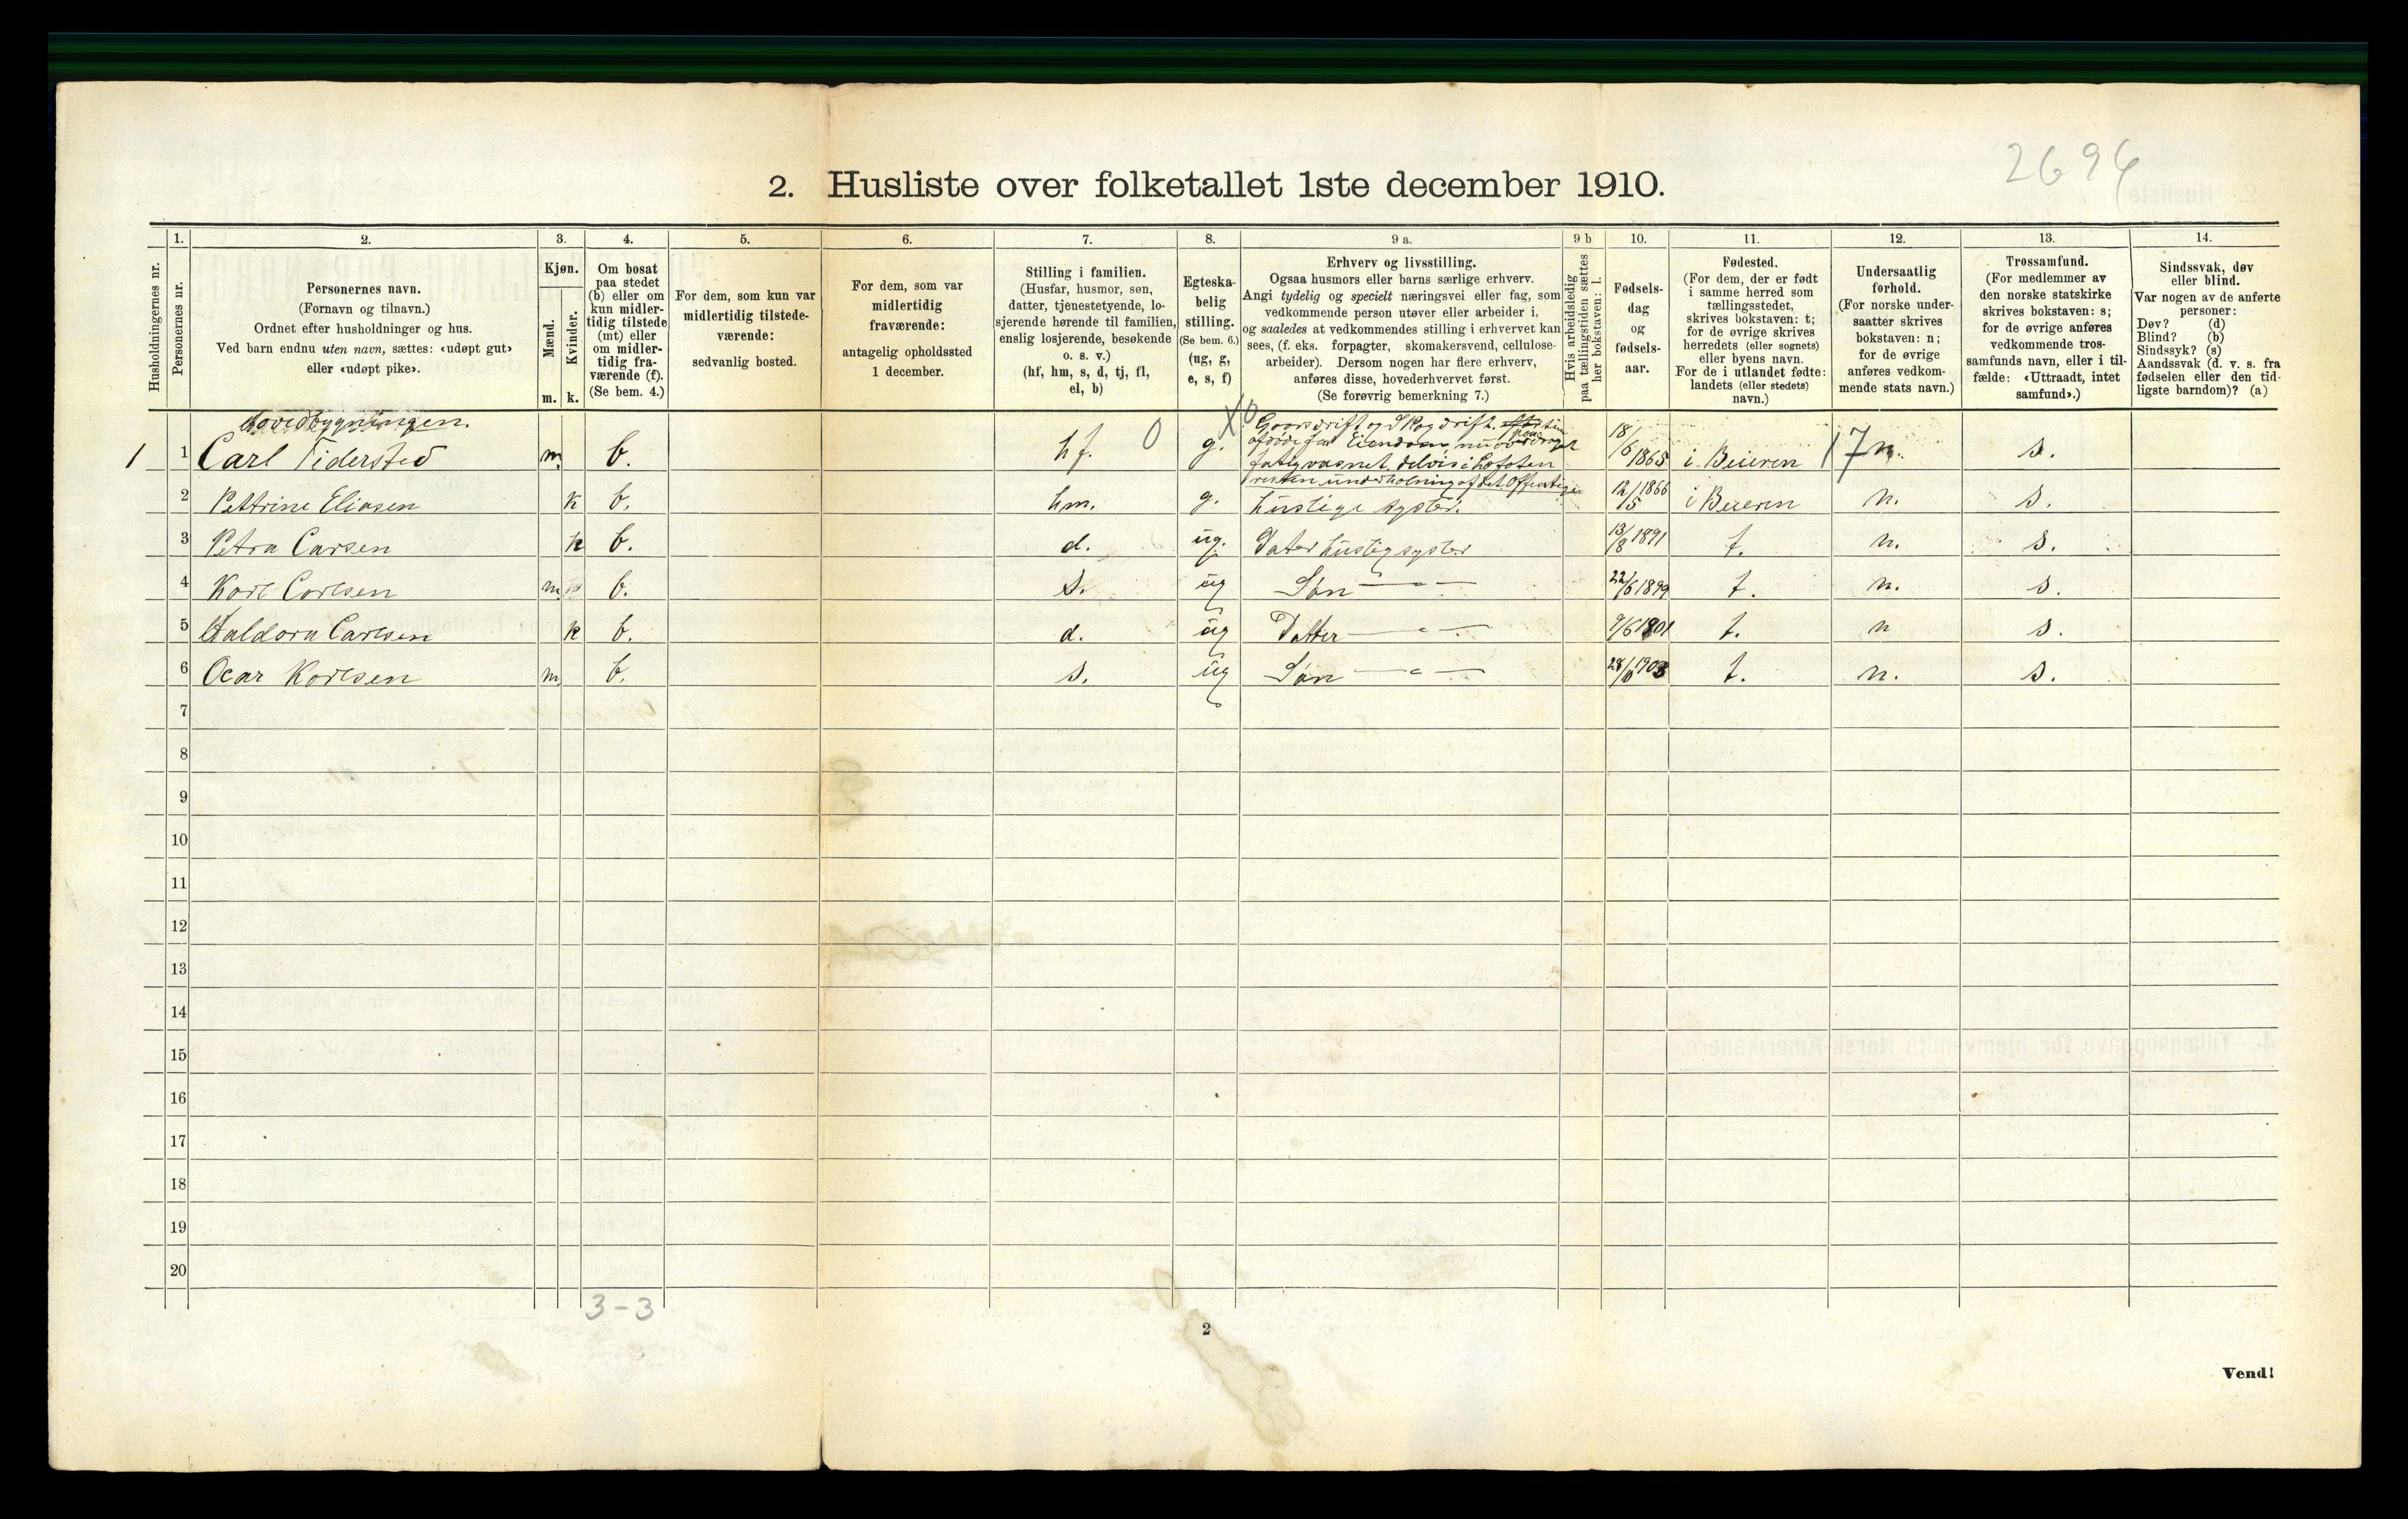 2694
2. Husliste over folketallet 1ste december 1910.
Husholdningernes nr.
1.
Personernes nr.
2.
Personernes navn.
(Fornavn og tilnavn.)
Ordnet efter husholdninger og hus.
Ved barn endnu uten navn, sættes: «udøpt gut»
eller «udøpt pike».
3.
Kjøn.
Mænd.
Kvinder.
m. k.
4.
Om bosat
paa stedet
(b) eller om
kun midler-
tidig tilstede
(mt) eller
om midler-
tidig fra-
værende (f).
(Se bem. 4.)
5.
For dem, som kun var
midlertidig tilstede-
værende:
sedvanlig bosted.
6.
For dem, som var
midlertidig
fraværende:
antagelig opholdssted
1 december.
7.
Stilling i familien.
(Husfar, husmor, søn,
datter, tjenestetyende, lo-
sjerende hørende til familien,
enslig losjerende, besøkende
o. s. v.)
(hf, hm, s, d, tj, fl,
el, b)
8.
Egteska-
belig
stilling.
(Se bem. 6.)
(ug, g,
e, s, f)
9 a.
Erhverv og livsstilling.
Ogsaa husmors eller barns særlige erhverv.
Angi tydelig og specielt næringsvei eller fag, som
vedkommende person utøver eller arbeider i,
og saaledes at vedkommendes stilling i erhvervet kan
sees, (f. eks. forpagter, skomakersvend, cellulose-
arbeider). Dersom nogen har flere erhverv,
anføres disse, hovederhvervet først.
(Se forøvrig bemerkning 7.)
9 b
Hvis arbeidsledig
paa tællingstiden sættes
her bokstaven: l.
10.
Fødsels-
dag
og
fødsels-
aar.
11.
Fødested.
(For dem, der er født
i samme herred som
tællingsstedet,
skrives bokstaven: t;
for de øvrige skrives
herredets (eller sognets)
eller byens navn.
For de i utlandet fødte:
landets (eller stedets)
navn.)
12.
Undersaatlig
forhold.
(For norske under-
saatter skrives
bokstaven: n;
for de øvrige
anføres vedkom-
mende stats navn.)
13.
Trossamfund.
(For medlemmer av
den norske statskirke
skrives bokstaven: s;
for de øvrige anføres
vedkommende tros-
samfunds navn, eller i til-
fælde: «Uttraadt, intet
samfund».)
14.
Sindssvak, døv
eller blind.
Var nogen av de anførte
personer:
Døv? (d)
Blind? (b)
Sindssyk? (s)
Aandssvak (d. v. s. fra
fødselen eller den tid-
ligste barndom)? (a)
Hovedbygningen.
Gaarsdrift og Skogdrift
1 1 Carl Tidersted m. b. hf. 0 g. 18/6 1865 i Beieren 17 n. s.
fatigvæsnet, delvis i Lofoten
resten underholning af det Offentlige
2 Pettrine Eliasen k b. hm. g. huslige sysler. 12/5 1866 i Beieren n. s.
3 Petra Carsen k b. d. ug. Dater huslig sysler 13/8 1891 t. n. s.
4 Karl Carlsen m b. s. ug Søn — " — 22/6 1899 t. n. s.
5 Haldora Carlsen k b. d. ug Datter — " — 9/6 1901 t. n s.
6 Ocar Karlsen m b. s. ug Søn — " — 1903 t. n. s.
7
8
9
10
11
12
13
14
15
16
17
18
19
20
3-3
2
Vend!